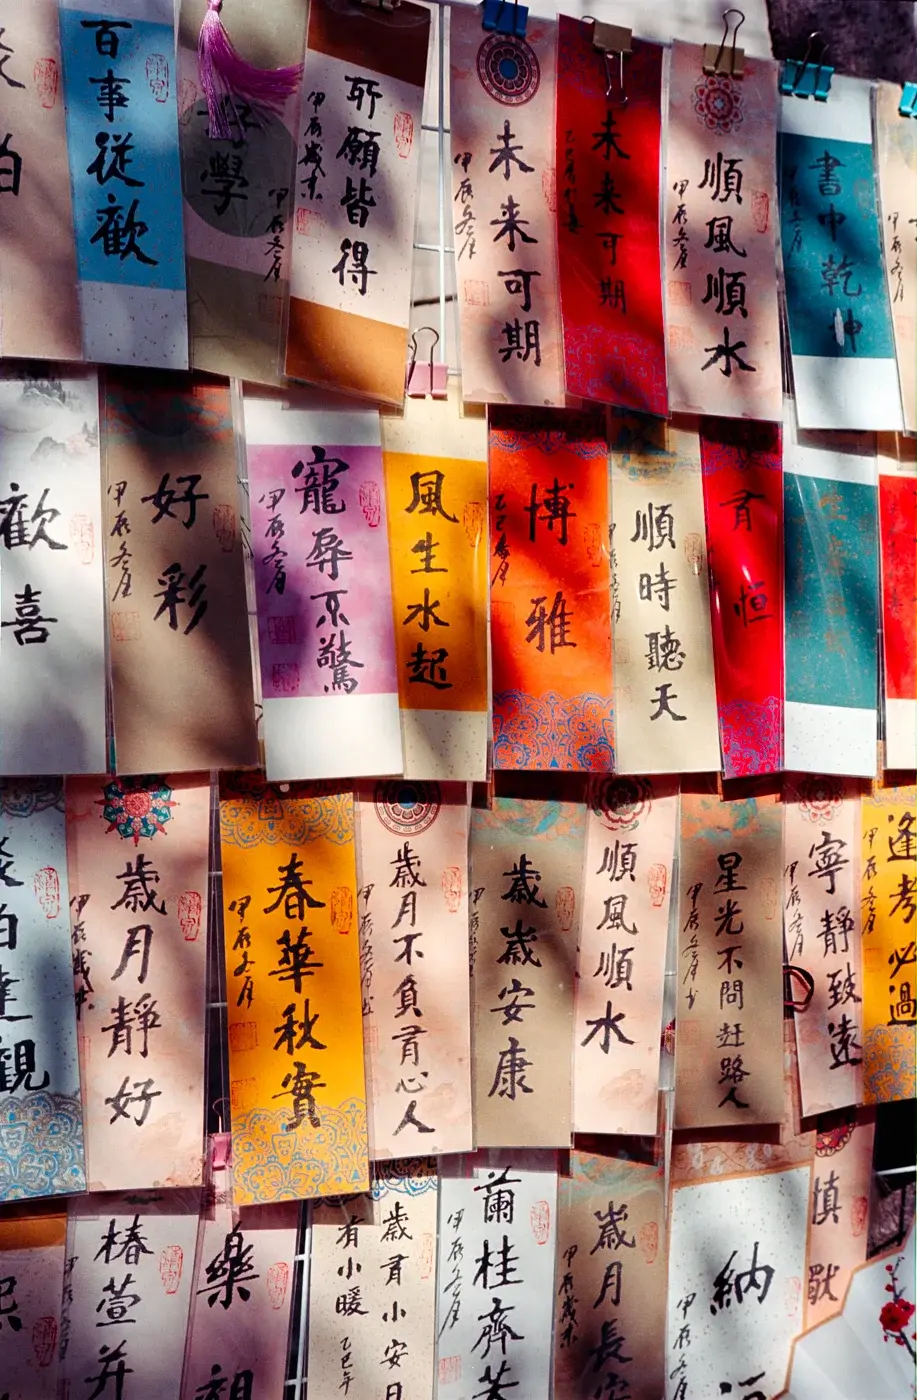 百事從歡
好學
甲辰冬月
所願皆得
甲辰歲末
未来可期
甲辰冬月
未来可期
順風順水
甲辰冬月
書中乾坤
歡喜
好彩
甲辰冬月
寵辱不驚
甲辰冬月
風生水起
博雅
順時聽天
有恒
達觀
歲月靜好
甲辰歲末
春華秋實
甲辰冬月
歲月不負有心人
歲歲安康
順風順水
星光不問赶路人
寧靜致遠
甲辰冬月
逢考必過
甲辰冬月
椿萱并
樂觀
歲有小安日
有小暖
乙巳年
蘭桂齊
甲辰冬月
歲月長安
甲辰歲末
納福
甲辰冬月
慎獨